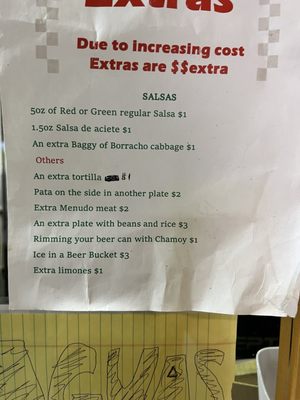 Extras
Due to increasing cost
Extras are $$extra
SALSAS
5oz of Red or Green regular Salsa $1
1.5oz Salsa de aciete $1
An extra Baggy of Borracho cabbage $1
Others
An extra tortilla $1
Pata on the side in another plate $2
Extra Menudo meat $2
An extra plate with beans and rice $3
Rimming your beer can with Chamoy $1
Ice in a Beer Bucket $3
Extra limones $1
AGUAS